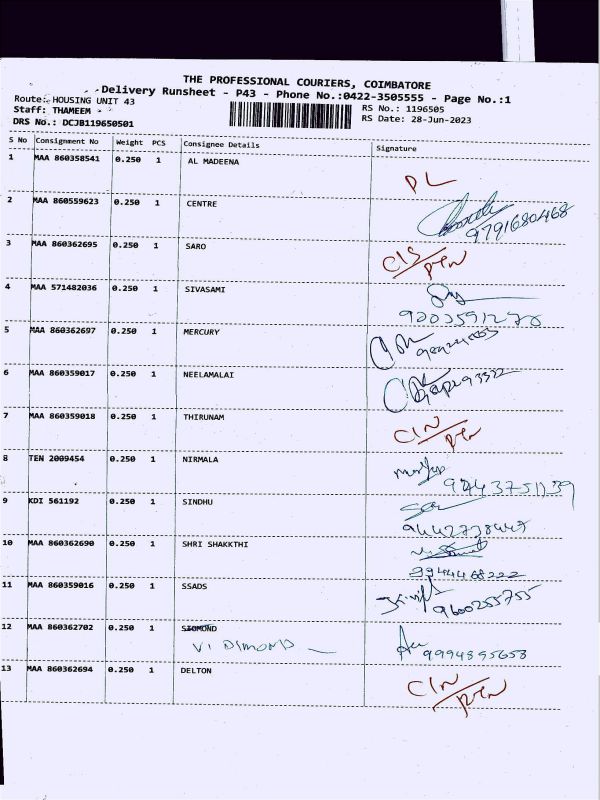 THE PROFESSIONAL COURIERS, COIMBATORE
Delivery Runsheet - P43 - Phone No.:0422-3505555 - Page No.:1
Route: HOUSING UNIT 43
Staff: THAMEEM
RS No.: 1196505
DRS No.: DCJB119650501
RS Date: 28-Jun-2023
S No Consignment No Weight PCS Consignee Details Signature
1 MAA 860358541 0.250 1 AL MADEENA
DL
2 MAA 860559623 0.250 1 CENTRE
9791680468
3 MAA 860362695 0.250 1 SARO
4 MAA 571482036 0.250 1 SIVASAMI
5 MAA 860362697 0.250 1 MERCURY
6 MAA 860359017 0.250 1 NEELAMALAI
7 MAA 860359018 0.250 1 THIRUNAM
CIN/
8 TEN 2009454 0.250 1 NIRMALA
9443751139
9 KDI 561192 0.250 1 SINDHU
10 MAA 860362690 0.250 1 SHRI SHAKKTHI
9944468222
11 MAA 860359016 0.250 1 SSADS
9600255755
12 MAA 860362702 0.250 1
VI DIMOND
9994895658
13 MAA 860362694 0.250 1 DELTON
CIN/